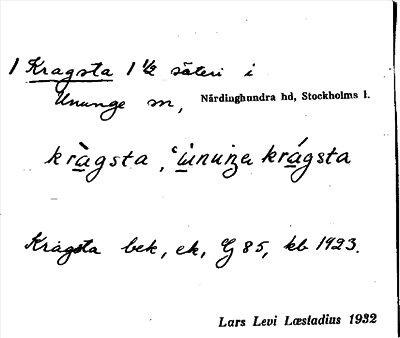 1 Kragsta 1 1/2 säteri i
Ununge sn, Närdinghundra hd, Stockholms l.
kràgsta, ‘ùnuŋe krágsta
Kragsta bek, ek, G 85, kb 1923.
Lars Levi Læstadius 1932